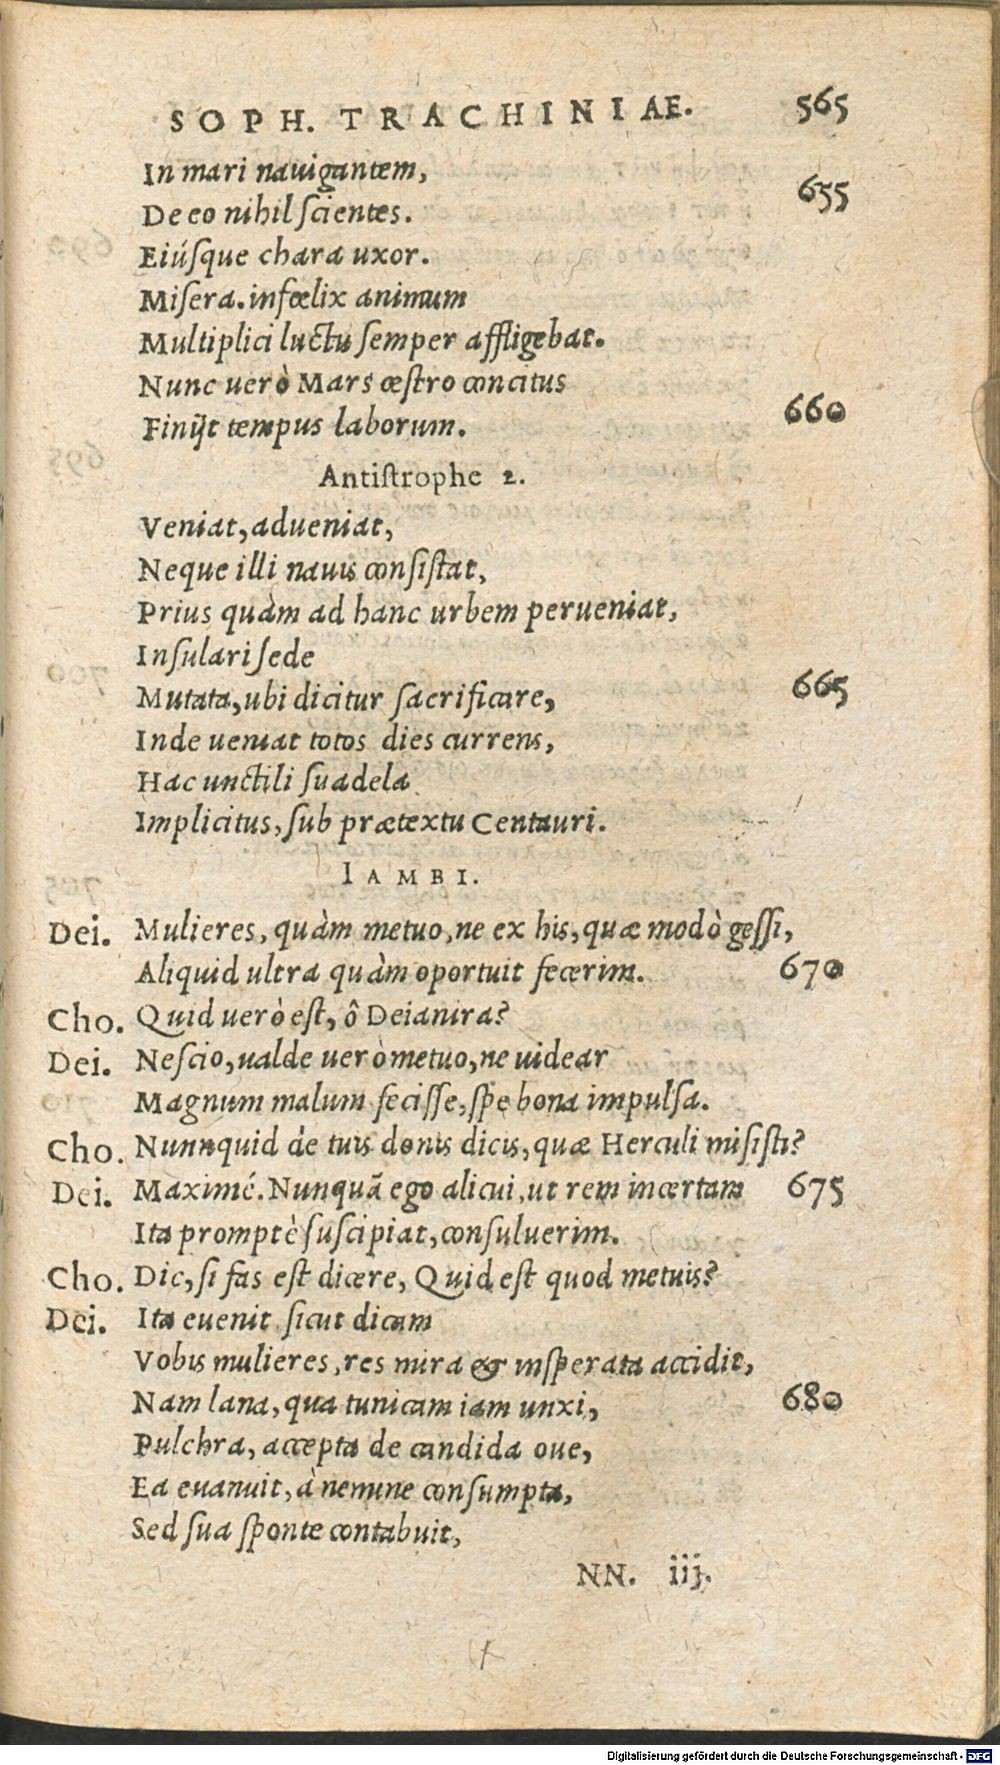 SOPH. TRACHINIAE. 565
In mari nauigantem,
De eo nihil scientes. 655
Eiúsque chara uxor.
Misera. infœlix animum
Multiplici luctu semper affligebat.
Nunc uerò Mars œstro concitus
Finijt tempus laborum. 660
Antistrophe 2.
Veniat, adueniat,
Neque illi nauis consistat,
Prius quàm ad hanc urbem perueniat,
Insulari sede
Mutata, ubi dicitur sacrificare, 665
Inde ueniat totos dies currens,
Hac unctili suadela
Implicitus, sub prætextu Centauri.
IAMBI.
Dei. Mulieres, quàm metuo, ne ex his, quæ modò gessi,
Aliquid ultra quàm oportuit fecerim. 670
Cho. Quid uerò est, ô Deianira?
Dei. Nescio, ualde uerò metuo, ne uidear
Magnum malum fecisse, spe bona impulsa.
Cho. Nunnquid de tuis donis dicis, quæ Herculi misisti?
Dei. Maximé. Nunquã ego alicui, ut rem incertam 675
Ita promptè suscipiat, consuluerim.
Cho. Dic, si fas est dicere, Quid est quod metuis?
Dei. Ita euenit sicut dicam
Vobis mulieres, res mira & insperata accidit,
Nam lana, qua tunicam iam unxi, 680
Pulchra, accepta de candida oue,
Ea euanuit, à nemine consumpta,
Sed sua sponte contabuit,
NN. iij.
Digitalisierung gefördert durch die Deutsche Forschungsgemeinschaft - DFG